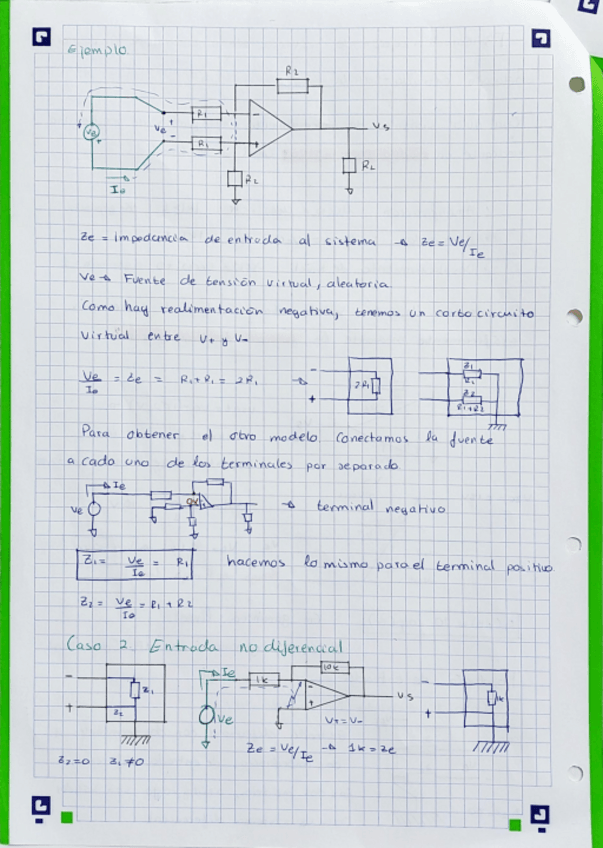 Ejemplo
R2
R1
Ve
+
Ve
-
-
+
Vs
+
R1
Ie
R2
RL
Ze = Impedancia de entrada al sistema → Ze = Ve/Ie
Ve → Fuente de tensión virtual, aleatoria.
Como hay realimentación negativa, tenemos un cortocircuito
virtual entre V+ y V-
Ve/Ie = Ze = R1+R1 = 2R1 →
-
2R1
+
Z1
R1
Z2
R1+R2
Para obtener el otro modelo conectamos la fuente
a cada uno de los terminales por separado
Ie
Ve
0V
→ terminal negativo
Z1 = Ve/Ie = R1 hacemos lo mismo para el terminal positivo
Z2 = Ve/Ie = R1 + R2
Caso 2. Entrada no diferencial
-
Z1
+
Z2
Ie
1k
10k
-
+
Vs
Ve
V+=V-
-
1k
+
Ze = Ve/Ie → 1k = Ze
Z2=0 Z1≠0